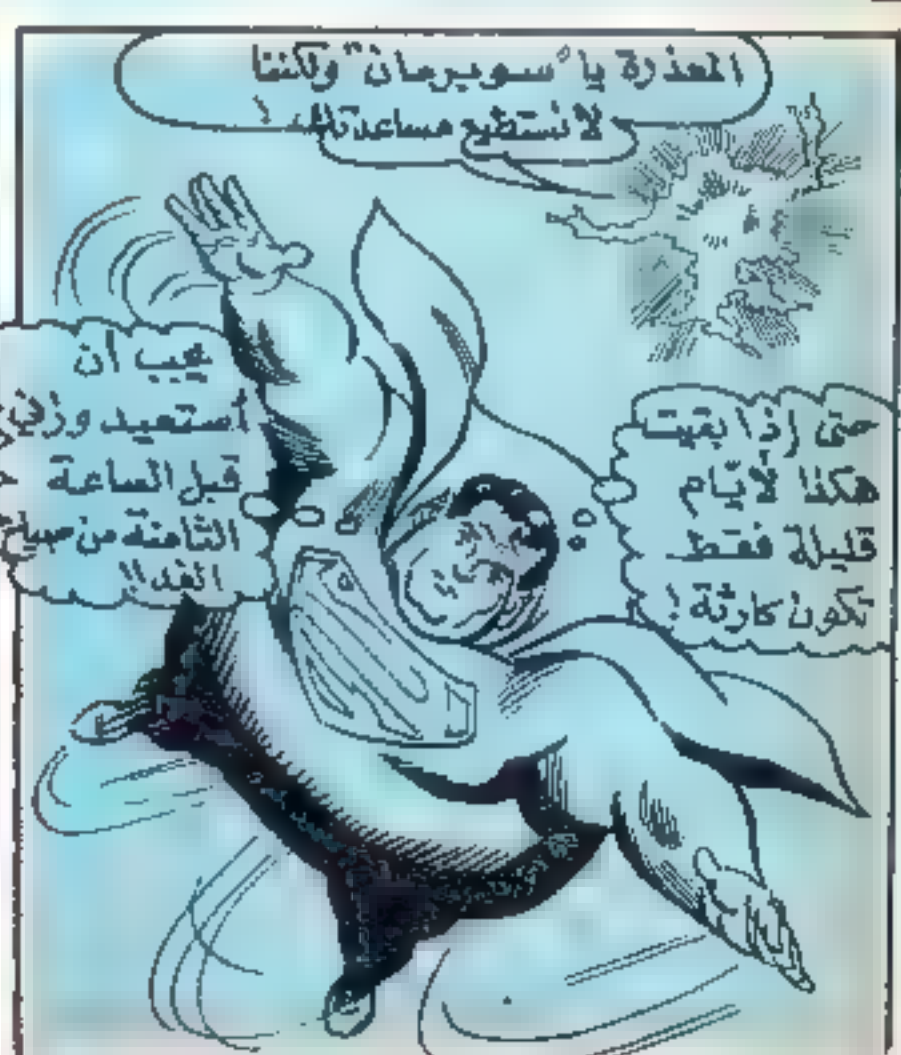 المعذرة يا "سوبرمان" ولكننا
لا نستطيع مساعدتك!
حتى إذا بقيت
هكذا لأيّام
قليلة فقط
تكون كارثة!
يجب ان
أستعيد وزني
قبل الساعة
الثامنة من صباح
الغد!!